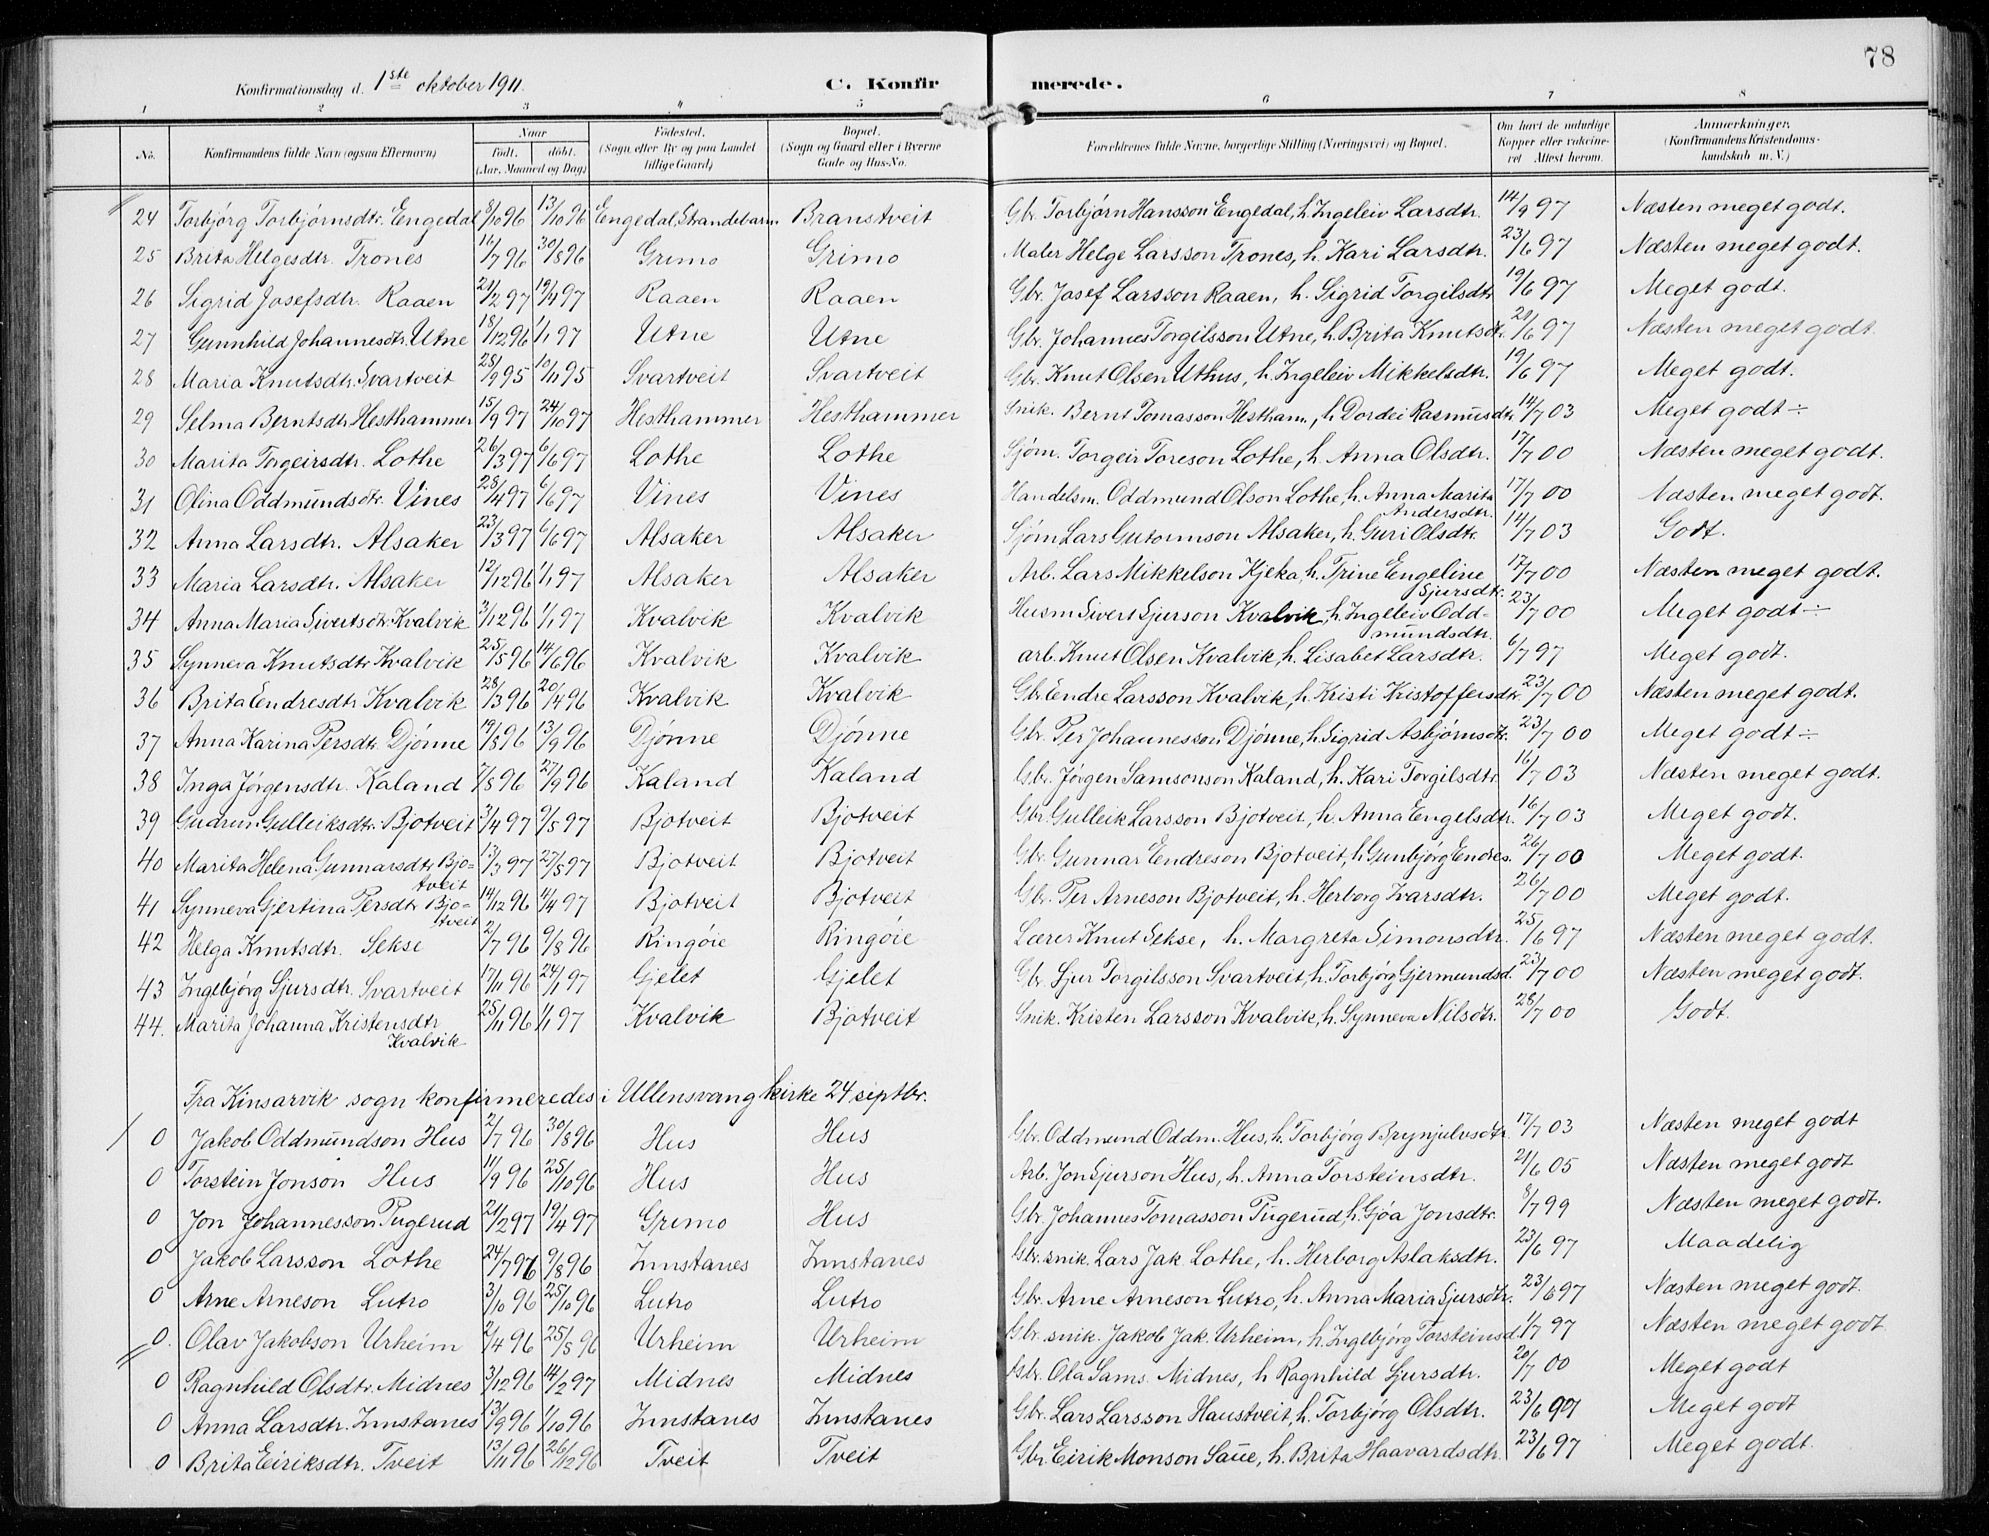 78
Konfirmationsdag d. 1ste oktober 1911.
C. Konfirmerede.
1 2 3 4 5 6 7 8
No. Konfirmandens fulde Navn (ogsaa Efternavn) Naar født. døbt. (Aar, Maaned og Dag) Fødested. (Sogn eller By og paa Landet tillige Gaard) Bopæl. (Sogn og Gaard eller i Byerne Gade og Hus-No. Forældrenes fulde Navne, borgerlige Stilling (Næringsvei) og Bopæl. Om havt de naturlige Kopper eller vakcineret Attest herom. Anmerkninger, (Konfirmandens Kristendomskundskab m. V.)
24 Torbjörg Torbjörnsdtr. Engedal 8/10 96 13/10 96 Engedal, Strandebarm. Branstveit Gbr. Torbjörn Hansson Engedal, h. Ingeleiv Larsdtr. 14/9 97 Næsten meget godt.
25 Brita Helgesdtr. Trones 16/7 96 30/8 96 Grimo Grimo Maler Helge Larsson Trones, h. Kari Larsdtr. 23/6 97 Næsten meget godt.
26 Sigrid Josefsdtr. Raaen 21/2 97 19/4 97 Raaen Raaen Gbr. Josef Larsson Raaen, h. Sigrid Torgilsdtr 19/6 97 Meget godt.
27 Gunnhild Johannesdtr. Utne 18/12 96 1/1 97 Utne Utne Gbr. Johannes Torgilsson Utne, h. Brita Knutsdtr. 21/6 97 Næsten meget godt.
28 Maria Knutsdtr. Svartveit 28/9 95 10/11 95 Svartveit Svartveit Gbr. Knut Olsen Uthus, h. Ingeleiv Mikkelsdtr. 19/6 97 Meget godt.
29 Selma Berntsdtr Hesthammer 15/9 97 24/10 97 Hesthammer Hesthammer Snik. Bernt Tomasson Hestham., h. Dordei Rasmusdtr 14/7 03 Meget godt ÷
30 Marita Torgeirsdtr. Lothe 26/3 97 6/6 97 Lothe Lothe Sjöm. Torgeir Toreson Lothe, h. Anna Olsdtr. 17/7 00 Næsten meget godt.
31 Olina Oddmundsdtr. Vines 28/4 97 6/6 97 Vines Vines Handelsm. Oddmund Olson Lothe, h. Anna Marita Andersdtr. 17/7 00 Næsten meget godt.
32 Anna Larsdtr. Alsaker 23/3 97 6/6 97 Alsaker Alsaker Sjöm Lars Gutormson Alsaker, h. Guri Olsdtr. 14/7 03 Godt.
33 Maria Larsdtr. Alsaker 12/12 96 1/1 97 Alsaker Alsaker Arb. Lars Mikkelson Kjeka, h. Trine Engeline Sjursdtr. 17/7 00 Næsten meget godt.
34 Anna Maria Sivertsdtr. Kvalvik 3/12 96 1/1 97 Kvalvik Kvalvik Husm Sivert Sjurson Kvalvik, h. Ingeleiv Oddmundsdtr. 23/7 00 Meget godt ÷
35 Synneva Knutsdtr Kvalvik 25/5 96 14/6 96 Kvalvik Kvalvik arb. Knut Olsen Kvalvik, h. Lisabet Larsdtr. 6/7 97 Meget godt.
36 Brita Endresdtr Kvalvik 28/3 96 20/4 96 Kvalvik Kvalvik Gbr Endre Larsson Kvalvik, h. Kristi Kristoffersdtr. 23/7 00 Næsten meget godt.
37 Anna Karina Persdtr. Djönne 19/8 96 13/9 96 Djönne Djönne Gbr. Per Johannesson Djönne, h. Sigrid Asbjörnsdtr. 23/7 00 Meget godt ÷
38 Inga Jörgensdtr. Kaland 7/8 96 27/9 96 Kaland Kaland Gbr. Jörgen Samsonson Kaland, h. Kari Torgilsdtr. 16/7 03 Næsten meget godt.
39 Gudrun Gulleiksdtr. Bjotveit 3/4 97 9/5 97 Bjotveit Bjotveit Gbr. Gulleik Larsson Bjotveit, h. Anna Engelsdtr. 16/7 03 Meget godt.
40 Marita Helena Gunnarsdtr Bjotveit 13/3 97 27/5 97 Bjotveit Bjotveit Gbr. Gunnar Endreson Bjotveit, h Gunbjörg Endres. 26/7 00 Meget godt.
41 Synneva Gjertina Persdtr Bjotveit 14/12 96 4/4 97 Bjotveit Bjotveit Gbr. Per Arneson Bjotveit, h. Herborg Ivarsdtr. 26/7 00 Meget godt.
42 Helga Knutsdtr. Sekse 2/7 96 9/8 96 Ringöie Ringöie Lærer Knut Sekse, h. Margreta Simonsdtr. 25/6 97 Næsten meget godt.
43 Ingebjörg Sjursdtr. Svartveit 17/11 96 24/1 97 Gjelet Gjelet Gbr. Sjur Torgilsson Svartveit, h. Torbjörg Gjermundsd. 23/7 00 Næsten meget godt.
44. Marita Johanna Kristensdtr Kvalvik 25/11 96 1/1 97 Kvalvik Bjotveit Snik. Kristen Larsson Kvalvik, h. Synneva Nilsdtr. 28/7 00 Godt.
Fra Kinsarvik sogn konfirmeredes i Ullensvang kirke 24 septbr.
0 Jakob Oddmundson Hus 2/7 96 30/8 96 Hus Hus Gbr. Oddmund Oddm. Hus, h. Torbjörg Brynjulvsdtr. 17/7 03 Næsten meget godt
0 Torstein Jonson Hus 11/9 96 25/10 96 Hus Hus Arb. Jon Sjurson Hus, h. Anna Torsteinsdtr. 21/6 05 Næsten meget godt
0 Jon Johannesson Pugerud 21/2 97 19/4 97 Grimo Hus Gbr. Johannes Tomasson Pugerud, h. Gjöa Jonsdtr. 8/7 99 Næsten meget godt.
0 Jakob Larsson Lothe 24/7 96 9/8 96 Innstanes Innstanes Gbr. snik. Lars Jak. Lothe, h. Herborg Aslaksdtr. 23/6 97 Maadelig
0 Arne Arneson Lutro 3/10 96 25/10 96 Lutro Lutro Gbr. Arne Arneson Lutro, h. Anna Maria Sjursdtr. 23/6 97 Næsten meget godt.
0. Olav Jakobson Urheim 2/4 96 25/8 96 Urheim Urheim Gbr. snik. Jakob Jak. Urheim, h. Ingebjörg Torsteinsd. 1/7 97 Næsten meget godt
0 Ragnhild Olsdtr. Midnes 3/12 96 14/2 97 Midnes Midnes Gbr. Ola Sams. Midnes, h Ragnhild Sjursdtr. 20/7 00 Meget godt
0 Anna Larsdtr. Innstanes 13/9 96 1/10 96 Innstanes Innstanes Gbr. Lars Larsson Haustveit, h. Torbjörg Olsdtr. 23/6 97 Meget godt
0 Brita Eiriksdtr. Tveit 13/11 96 26/12 96 Tveit Tveit Gbr. Eirik Monson Saue, h. Brita Haavardsdtr. 23/6 97 Meget godt.